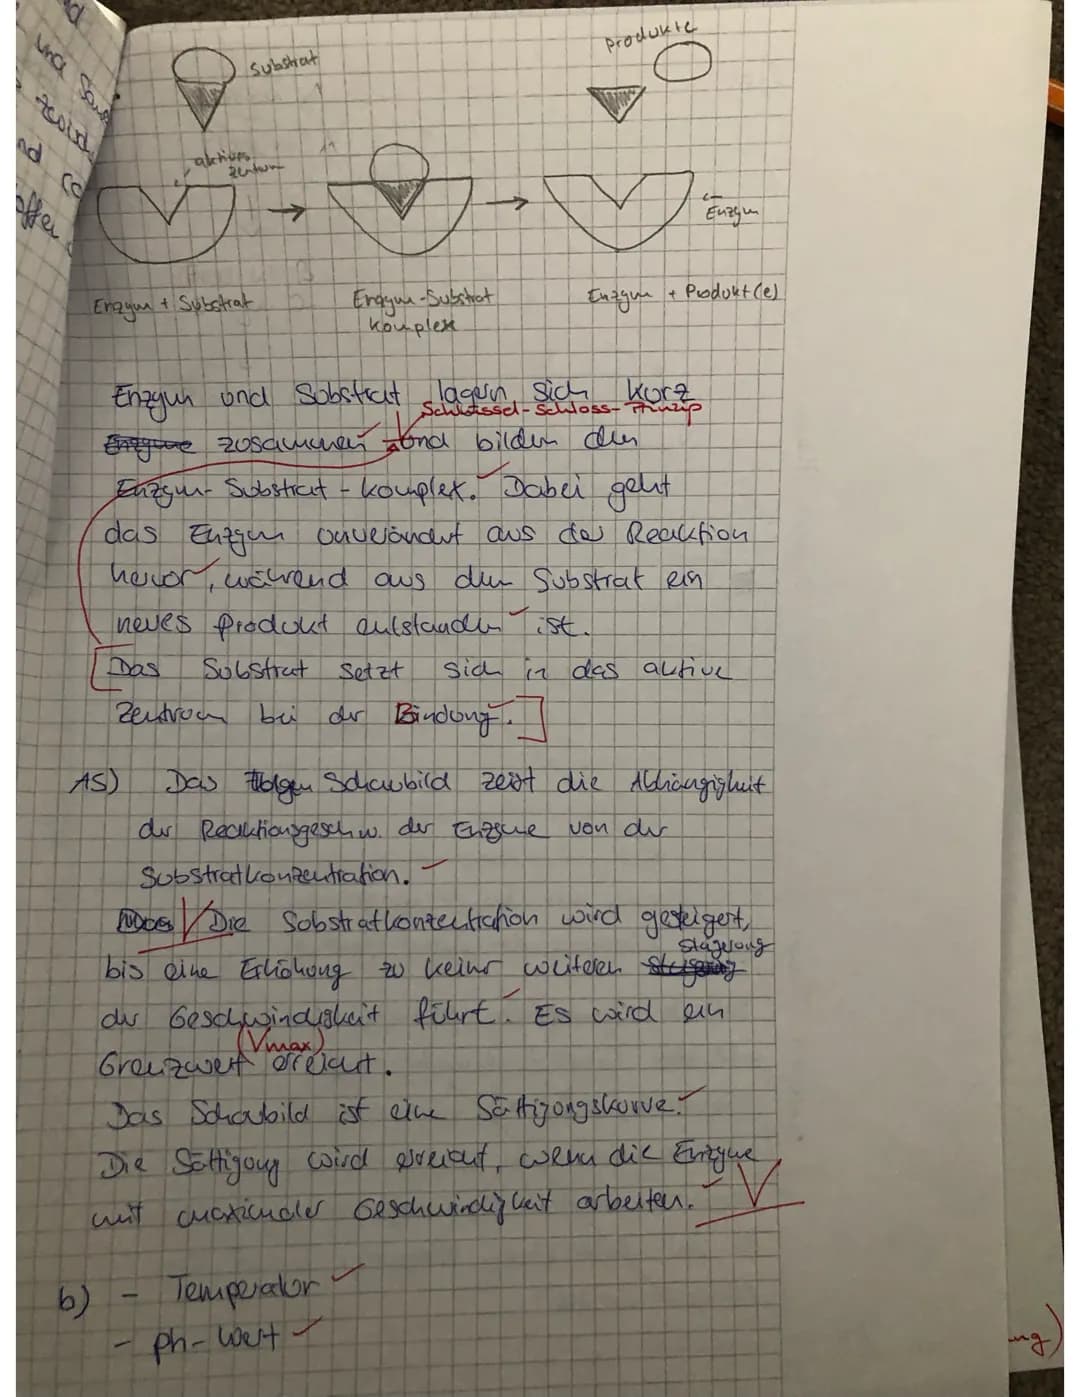 Produkte
Substrat
aktives
Zentrum
Enzym
Enzym + Substrat
Enzym-Substrat
komplex
Enzym + Produkt(e)
Enzym und Substrat lagern sich kurz
Schlüssel-Schloss-Prinzip
Enzyme zusammen und bilden den
Enzym-Substrat-komplex. Dabei geht
das Enzym unverändert aus der Reaktion
hervor, während aus dem Substrat ein
neues Produkt entstanden ist.
[Das Substrat setzt sich in das aktive
Zentrum bei der Bindung.]
A5) Das Schaubild zeigt die Abhängigkeit
der Reaktionsgeschw. der Enzyme von der
Substratkonzentration.
Die Substratkonzentration wird gesteigert,
Steigerung
bis eine Erhöhung zu keiner weiteren
der Geschwindigkeit führt. Es wird ein
(Vmax)
Grenzwert erreicht.
Das Schaubild ist eine Sättigungskurve.
Die Sättigung wird erreicht, wenn die Enzyme
mit maximaler Geschwindigkeit arbeiten.
b) - Temperatur
- ph-Wert